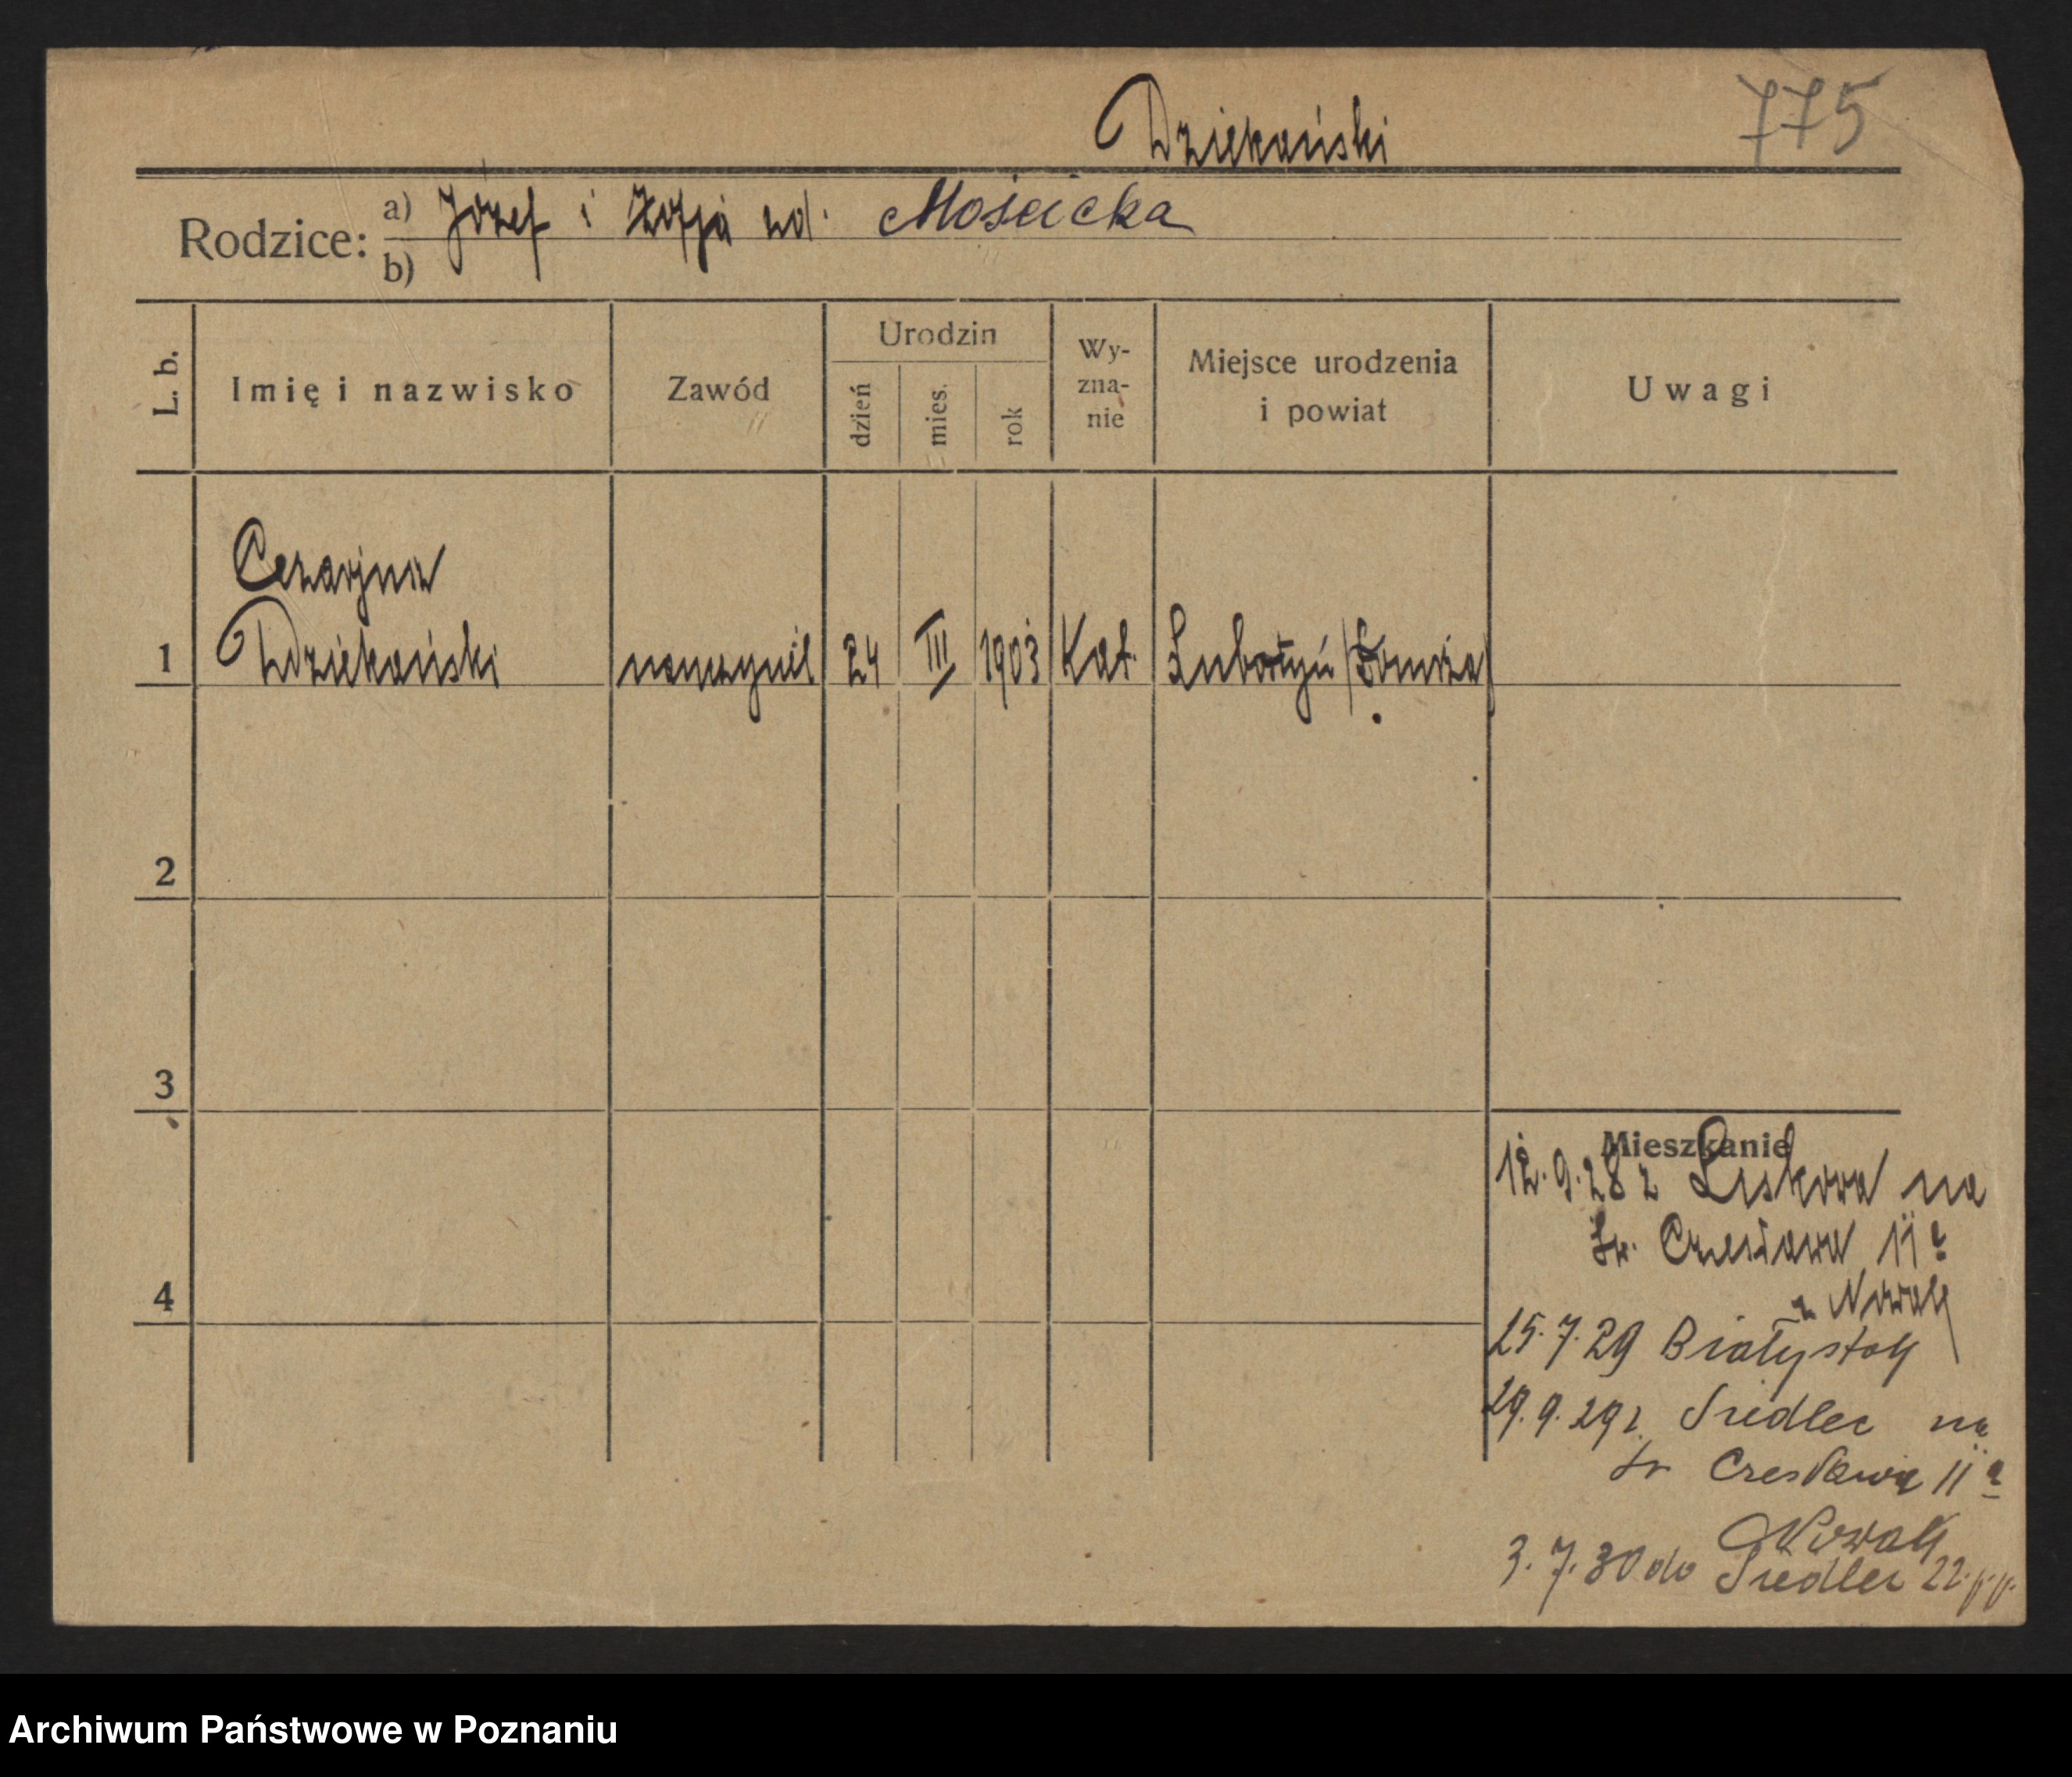 Dziekański 775
Rodzice: a) Józef i Zofja zd. Mościcka
b)
L. b. Imię i nazwisko Zawód Urodzin dzień mies. rok Wy-zna-nie Miejsce urodzenia i powiat Uwagi
Cezarjusz
1 Dziekański nauczyciel 24 III 1903 Kat. Lubotyń /Łomża/
2
3
Mieszkanie
12.9.28 z Liskowa na
Św. Czesława 11a
4
z Nowak
25.7.29 Białystok
29.9.29 z Siedlec na
św Czesława 11a
Nowak
3.7.30 do Siedlec 22.p.p.
Archiwum Państwowe w Poznaniu